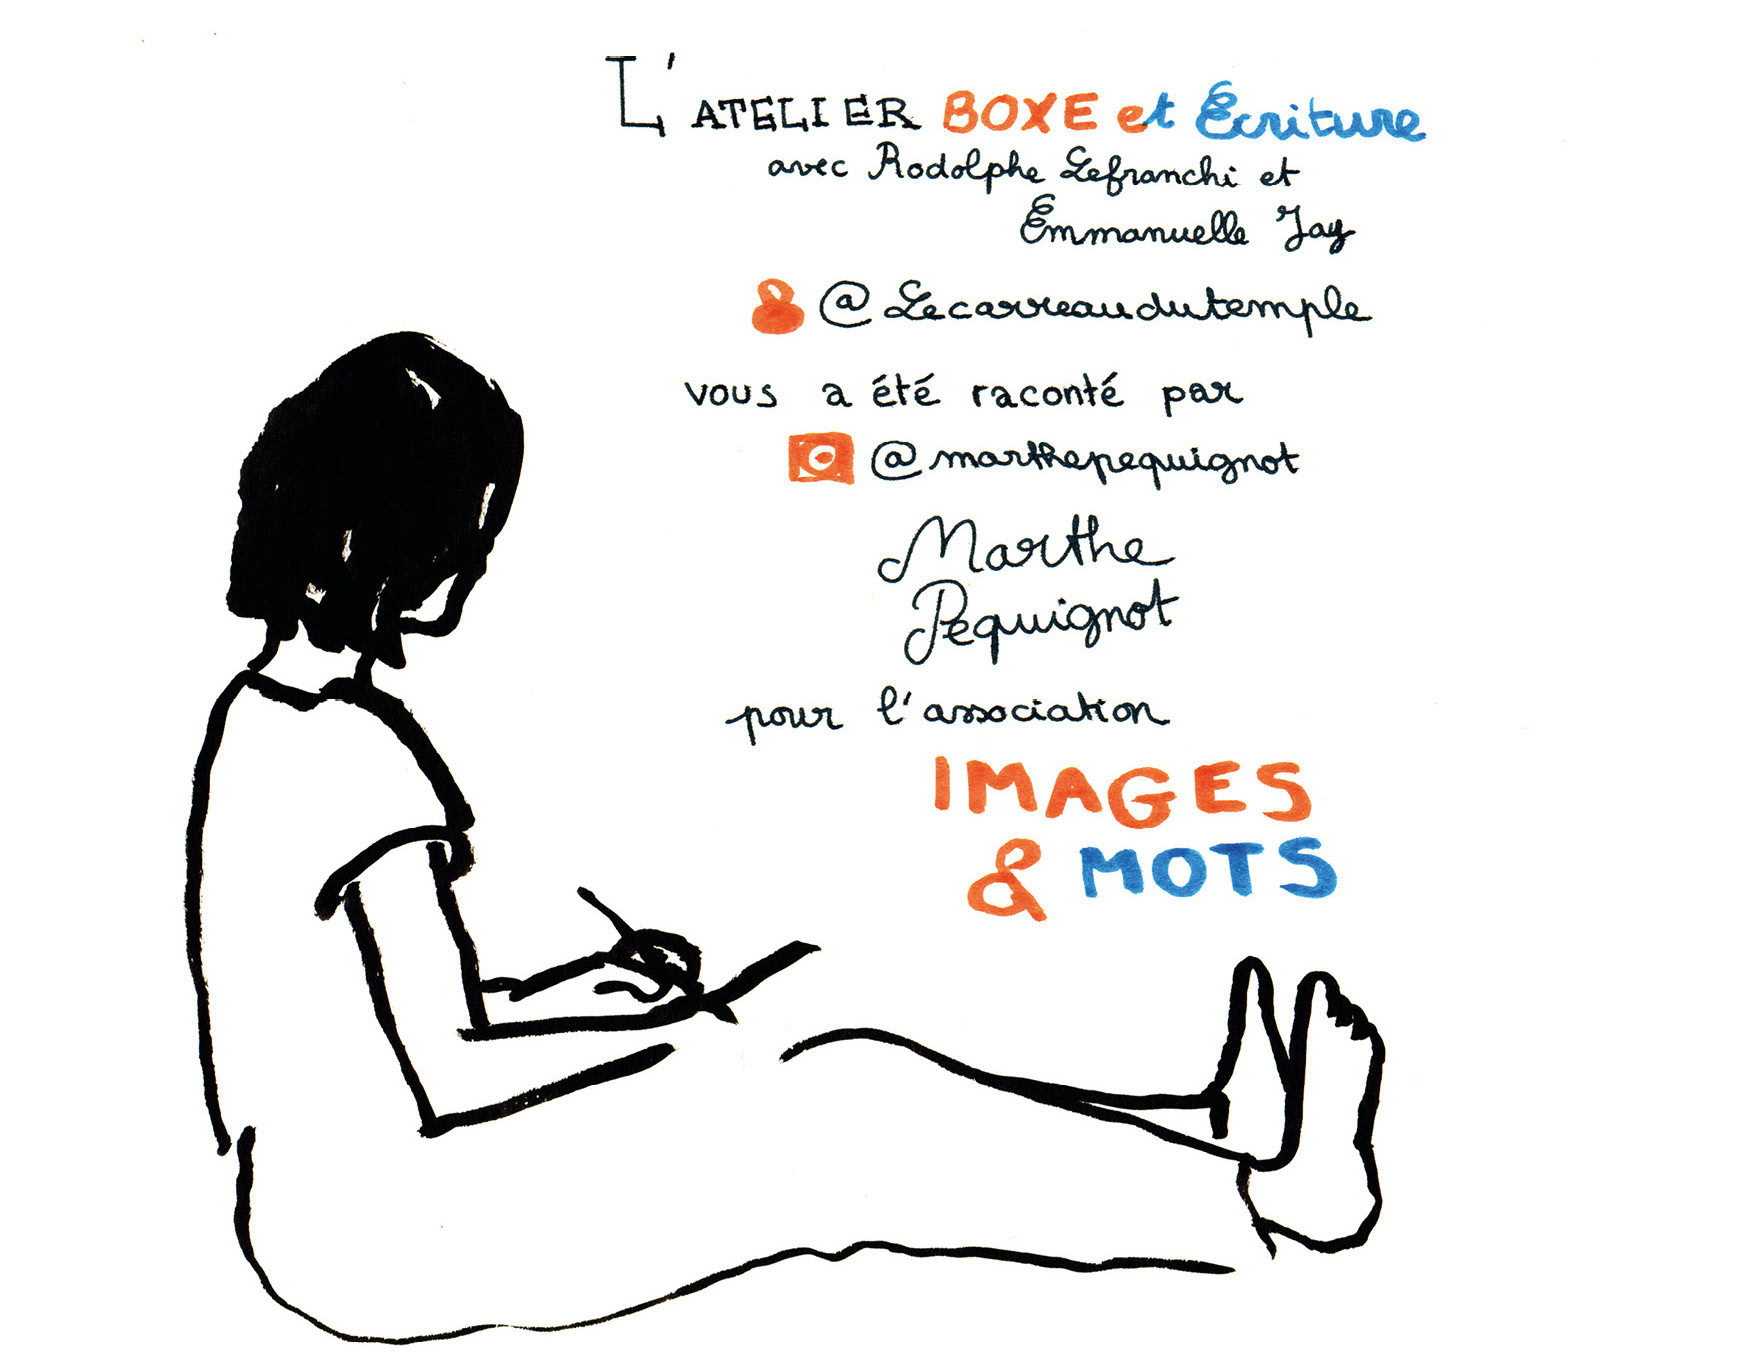 L'ATELIER BOXE et Ecriture
avec Rodolphe Lefranchi et
Emmanuelle Jay
@Lecarreaudutemple
vous a été raconté par
@marthepequignot
Marthe
Pequignot
pour l'association
IMAGES
& MOTS